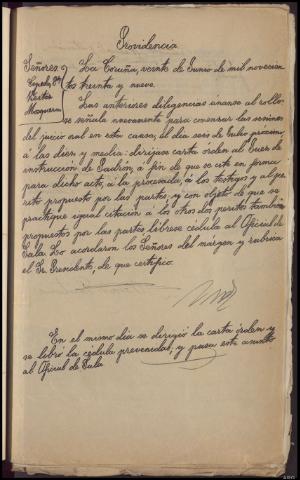 Providencia
Señores
La Coruña, veinte de Junio de mil novecien
tos treinta y nueve.
Las anteriores diligencias únanse al rollo
se señala nuevamente para comenzar las sesiones
del juicio oral en esta causa, el día seis de Julio próximo
á las diez y media: diríjase carta orden al Juez de
instrucción de Padrón, a fin de que se cite en forma
para dicho acto, á la procesada, á los testigos y al pe
rito propuesto por las partes, y con objeto de que se
practique igual citación a los otros dos peritos también
propuestos por las partes líbrese cédula al Oficial de
Sala. Lo acordaron los Señores del margen y rubrica
el Sr. Presidente, de que certifico.
En el mismo día se dirigió la carta órden y
se libró la cédula prevenidas, y pasa este asunto
al Oficial de Sala